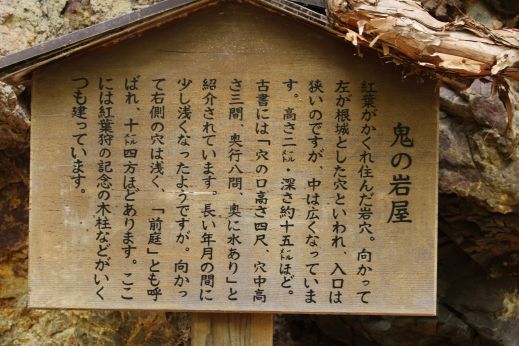 鬼の岩屋
紅葉がかくれ住んだ岩穴。向かって
左が根城とした穴といわれ、入口は
狭いのですが、中は広くなっていま
す。高さ二㍍・深さ約十五㍍ほど。
古書には「穴の口高さ四尺、穴中高
さ三間、奥行八間、奥に水あり」と
紹介されています。長い年月の間に
少し浅くなったようですが。向かっ
て右側の穴は浅く、「前庭」とも呼
ばれ、十㍍四方ほどあります。ここ
には紅葉狩の記念の木柱などがいく
つも建っています。